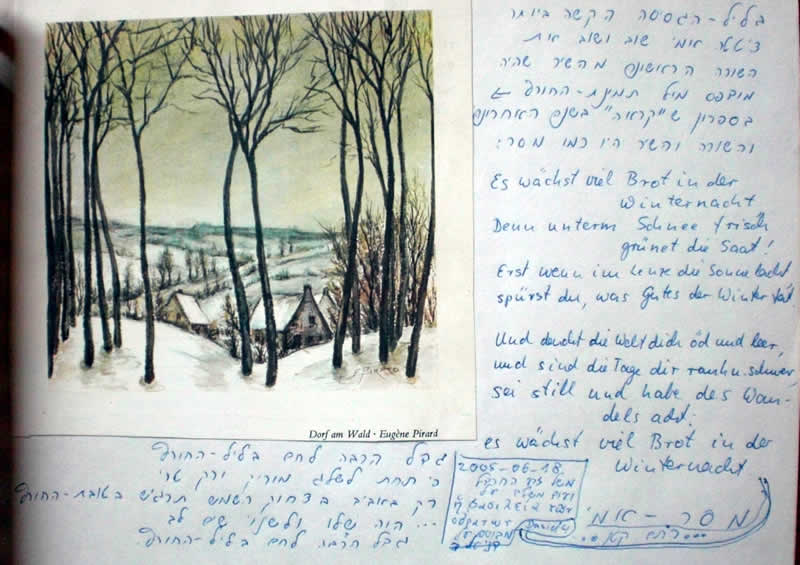 בליל-הגסיסה הקשה ביותר
ציטטה אימי שוב ושוב את
השורה הראשונה מהשיר שהיה
מודפס מול תמונת-החורף ←
בספרון ש"קראה" בשנים האחרונות
והשורה והשיר היו כמו מסר:
Es wächst viel Brot in der
Winternacht
Denn unterm Schnee frisch
grünet die Saat!
Erst wenn im Lenze die Sonne lacht
spürst du, was Gutes der Winter tat.
Und deucht die Welt dich öd und leer,
und sind die Tage dir rauh u. schwer,
sei still und habe des Wan-
dels acht:
es wächst viel Brot in der
Winternacht
Dorf am Wald · Eugène Pirard
גדל הרבה לחם בליל-החורף
כי תחת לשלג מוריק ורק טרי
רק באביב בצחוק השמש תרגיש בטובת-החורף
... היה שלו ולשנוי שים לב
גדל הרבה לחם בליל-החורף.
2005-06-18
מסר - אמי